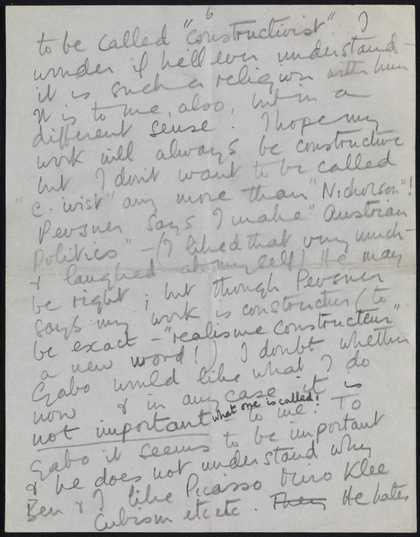 6
to be called "constructivist" I
wonder if he'll ever understand
it is such a religion with him
It is to me, also, but in a
different sense. I hope my
work will always be constructive
but I don't want to be called
"c.'ivist" any more than "Nicholson"!
Pevsner says I make "Austrian
Politics" – (I liked that very much –
& laughed at myself) He may
be right; but though Pevsner
says my work is constructive (to
be exact – "realisme constructeur"
a new word!) I doubt whether
Gabo would like what I do
now & in any case it is
not important what one is called! to me! To
Gabo it seems to be important
& he does not understand why
Ben & I like Picasso Miro Klee
Cubism etc etc. They He hates